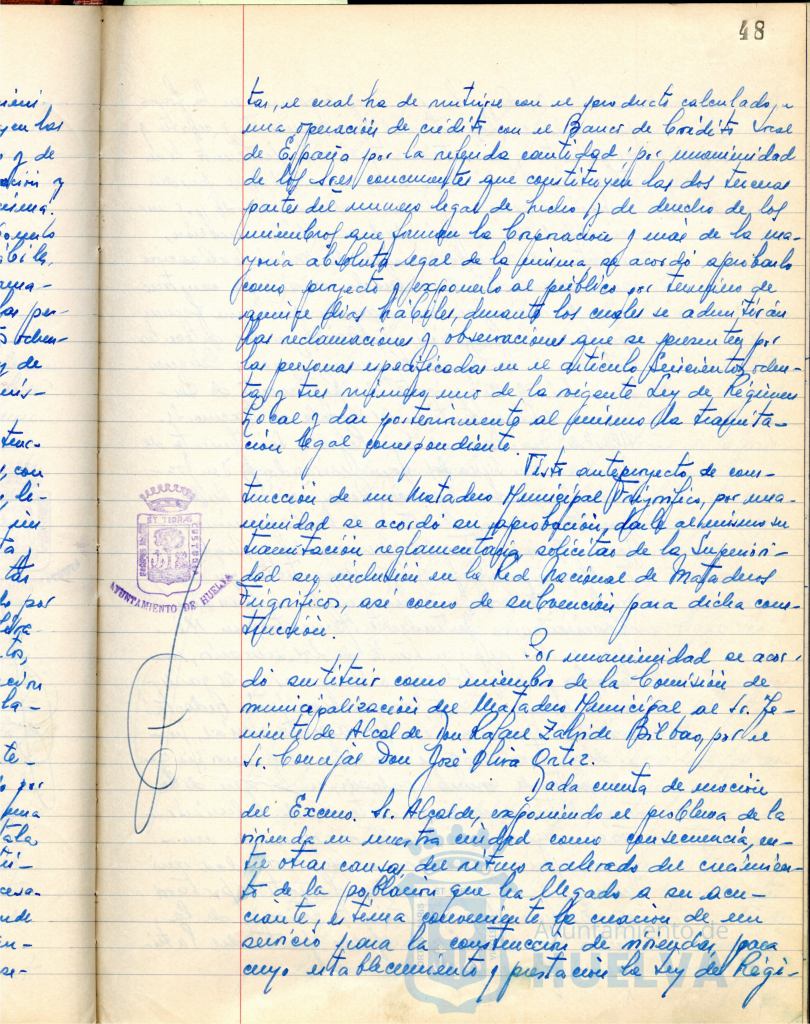 48
tas, el cual ha de nutrirse con el producto calculado, a
una operación de crédito con el Banco de Crédito Local
de España por la referida cantidad; por unanimidad
de los Sres concurrentes que constituyen las dos terceras
partes del número legal de hecho y de derecho de los
miembros que forman la Corporación y más de la ma-
yoría absoluta legal de la misma, se acordó aprobarlo
como proyecto y exponerlo al público por término de
quince días hábiles, durante los cuales se admitirán
las reclamaciones y observaciones que se presenten por
las personas especificadas en el artículo Seiscientos ochen-
ta y tres número uno de la vigente Ley de Régimen
Local y dar posteriormente al mismo la tramita-
ción legal correspondiente.
Visto anteproyecto de cons-
trucción de un Matadero Municipal Frigorífico, por una-
nimidad se acordó su aprobación, darle al mismo su
tramitación reglamentaria, solicitar de la Superiori-
dad su inclusión en la Red Nacional de Mataderos
Frigoríficos, así como de subvención para dicha cons-
trucción.
Por unanimidad se acor-
dó sustituir como miembro de la Comisión de
municipalización del Matadero Municipal al Sr. Te-
niente de Alcalde Don Rafael Bilbao, por el
Sr. Concejal Don José Oliva Ortiz.
Dada cuenta de moción
del Excmo. Sr. Alcalde, exponiendo el problema de la
vivienda en nuestra ciudad como consecuencia, en-
tre otras causas del ritmo acelerado del crecimien-
to de la población que ha llegado a ser acu-
ciante, estima conveniente la creación de un
servicio para la construcción de viviendas para
cuyo establecimiento y prestación la Ley de Régi-
AYUNTAMIENTO DE HUELVA
Ayuntamiento de
HUELVA